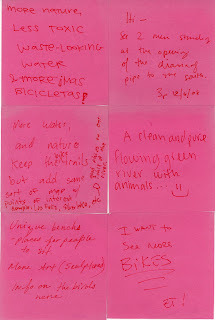 more nature,
Less TOXIC
WASTE-LOOKING
WATER
& more ¡MAS
BICICLETAS!
Hi -
See 2 men standing
at the opening
of the drainage
pipe to the south.
More water,
and nature
Keep the trails
but add some
sort of map of
points of interest
A clean and pure
flowing green
river with
animals...
Unique benches
places for people
to sit
More Art (sculptures)
info on the birds
I want to
See more
BIKES
ET!